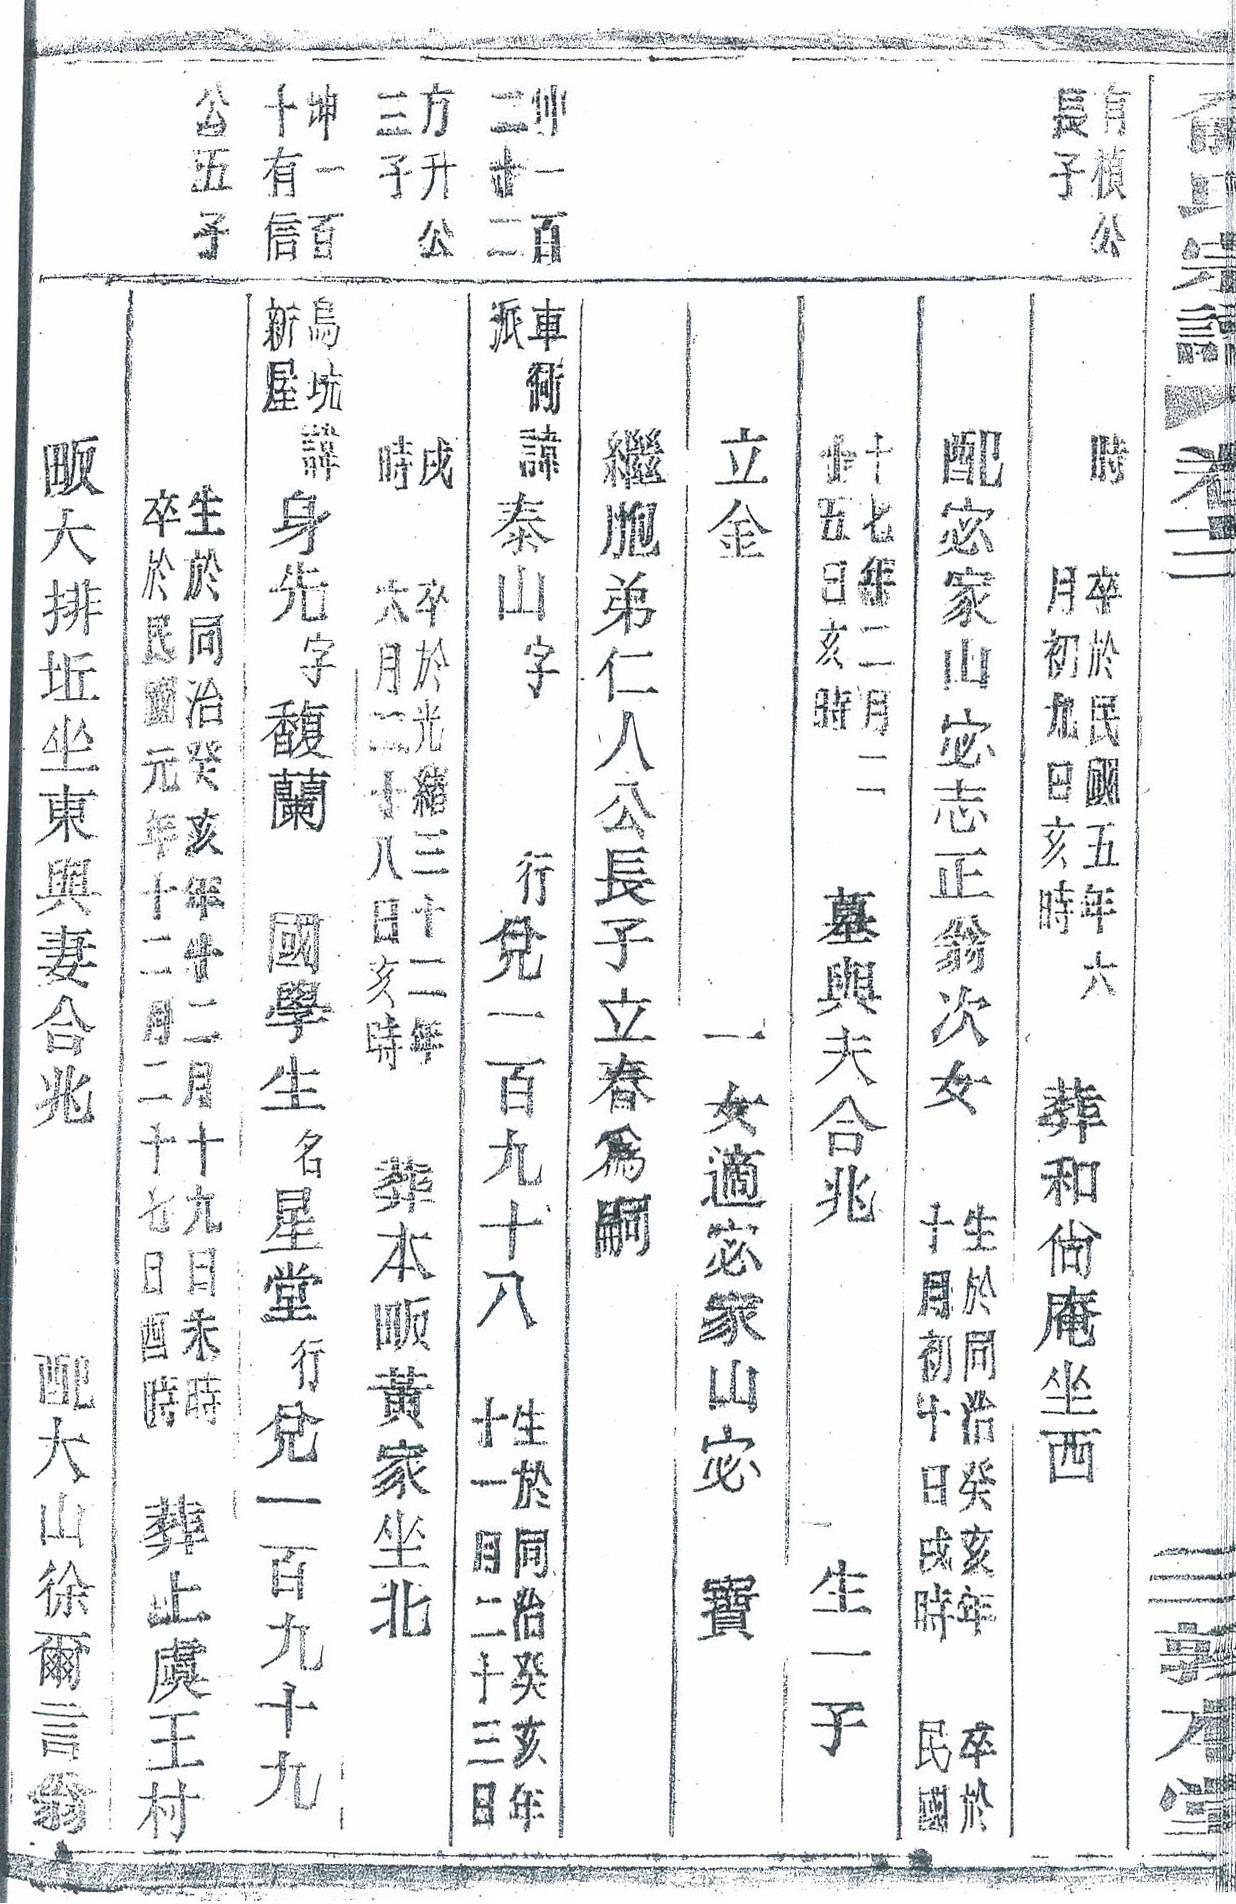 氏宗譜 卷二 三 敦本堂
有楨公
長子
時 卒於民國五年六
月初九日亥時 葬和尙庵坐西
配宓家山宓志正翁次女 生於同治癸亥年
十月初十日戌時 卒於
民國
十七年二月二
十五日亥時 墓與夫合兆 生一子
立金 一女適宓家山宓 寶
繼胞弟仁人公長子立春爲嗣
坤一百
二廿二
車衕
派 諱泰山字 行兌一百九十八 生於同治癸亥年
十一月二十三日
方升公
三子
戌
時 卒於光緒三十二年
六月二十八日亥時 葬本畈黃家坐北
坤一百
十有信
烏坑
新屋 諱身先字馥蘭 國學生名星堂行兌一百九十九
公五子
生於同治癸亥年廿二月十九日未時
卒於民國元年十二月二十七日酉時 葬上虞王村
畈大排坵坐東與妻合兆 配大山徐爾言翁